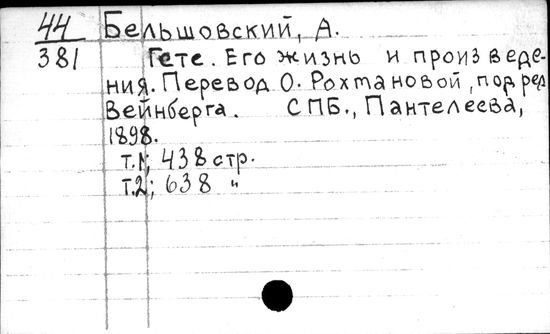 44 Бельшовский, А.
381 Гете. Его жизнь и произведе-
ния. Перевод О. Рохмановой, под ред
Вейнберга. СПБ., Пантелеева,
1898.
т.1; 438 стр.
т.2; 638 "